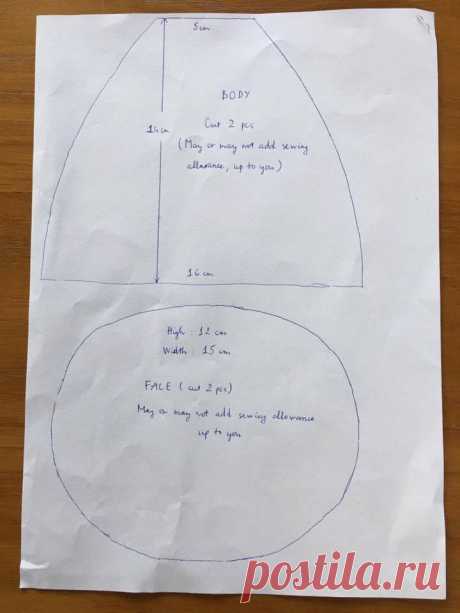 5cm
BODY
14cm
Cut 2 pcs
(May or may not add sewing
allowance, up to you)
16 cm
High : 12 cm
Width : 15 cm
FACE (cut 2 pcs)
May or may not add sewing allowance
up to you
postila.ru